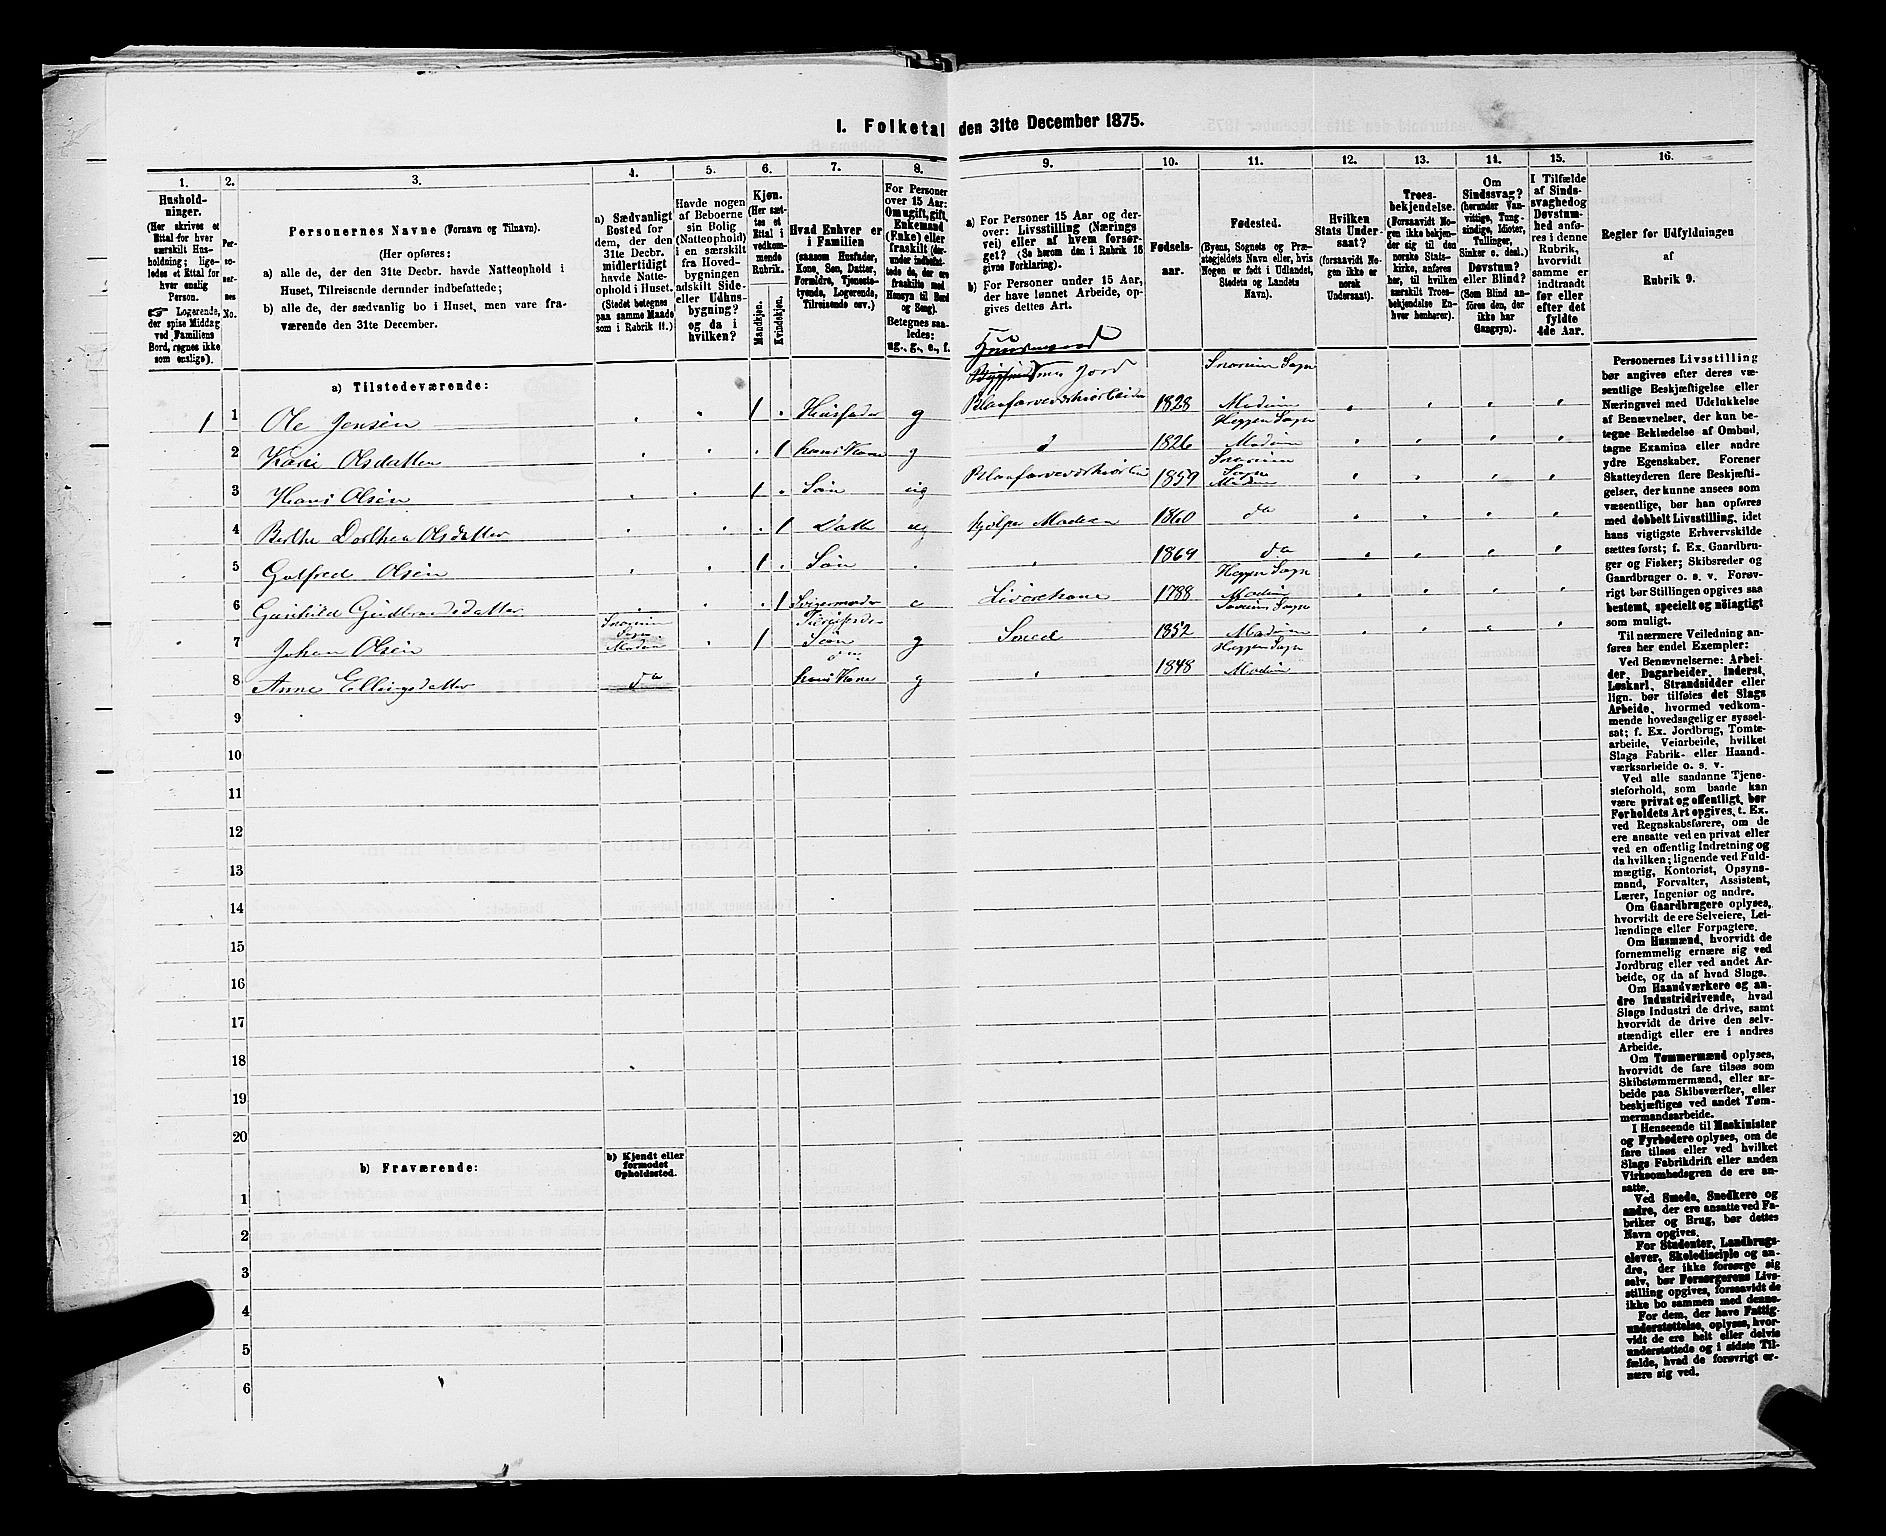 I. Folketal den 31te December 1875.
1.
Husholdninger.
(Her skrives et
Ettal for hver
særskilt Husholdning; ligeledes
et Ettal for
hver enlig
Person.
Logerende,
der spise Middag
ved Familiens
Bord, regnes ikke
som enslige).
2.
Personernes
No.
3.
Personernes Navne (Fornavn og Tilnavn).
(Her opføres:
a) alle de, der den 31te Decbr. havde Natteophold i
Huset, Tilreisende derunder indbefattede;
b) alle de, der sædvanlig bo i Huset, men vare fraværende
den 31te December.
4.
a) Sædvanligt
Bosted for
dem, der den
31te Decbr.
midlertidigt
havde Natteophold
i Huset.
(Stedet betegnes
paa samme Maade
som i Rubrik 11.)
5.
Havde nogen
af Beboerne
sin Bolig
(Natteophold)
i en særskilt
fra Hovedbygningen
adskilt Side-
eller Udhusbygning?
og da i
hvilken?
6.
Kjøn.
(Her sættes
et
Ettal i
vedkommende
Rubrik.
Mandkjøn.
Kvindekjøn.
7.
Hvad Enhver er
i Familien
(saasom Husfader,
Kone, Søn, Datter,
Forældre, Tjenestetyende,
Logerende,
Tilreisende osv.)
8.
For Personer
over 15 Aar:
Om ugift, gift,
Enkemand
(Enke) eller
fraskilt
Betegnes saaledes:
ug., g., e., f.
9.
a) For Personer 15 Aar og derover:
Livsstilling (Næringsvei)
eller af hvem forsørget?
(Se herom den i Rubrik 16
givne Forklaring).
b) For Personer under 15 Aar,
der have lønnet Arbeide, opgives
dettes Art.
10.
Fødselsaar.
11.
Fødested.
(Byens, Sognets og Præstegjeldets
Navn eller, hvis
Nogen er født i Udlandet,
Stedets og Landets
Navn).
12.
Hvilken
Stats Undersaat?
(forsaavidt Nogen
ikke er
norsk
Undersaat).
13.
Troesbekjendelse.
(Forsaavidt Nogen
ikke bekjender
sig til den
norske Statskirke,
anføres
her, til hvilken
særskilt Troesbekjendelse
Enhver
henhører).
14.
Om
Sindssvag?
(herunder Vanvittige,
Tungsindige,
Idioter,
Tullinger,
Sinker o. desl.)
Døvstum?
eller Blind?
(Som Blind anføres
den, der
ikke har
Gangsyn).
15.
I Tilfælde
af Sindssvaghed
og
Døvstumhed
anføres
i denne
Rubrik,
hvorvidt
samme er
indtraadt
før eller
efter det
fyldte
4de Aar.
16.
Regler for Udfyldningen
af
Rubrik 9.
a) Tilstedeværende:
Huusmand
med Jord
1 1 Ole Jensen 1 Husfader g Blaafarveværksarbeider 1828 Snarum Sogn Modum
2 Kari Olsdatter 1 hans Kone g 1826 Heggen Sogn Modum
3 Hans Olsen 1 Søn ug Blaafarveværksarbei 1859 Snarum Sogn Modum
4 Berthe Dorthea Olsdatter 1 Datt ug hjelper Moderen 1860 do
5 Gulfred Olsen 1 Søn 1869 do
6 Gunhild Gudbrandsdatter 1 Svigermoder e Livørekone 1788 Heggen Sogn Modum
7 Johan Olsen Snarum Sogn Modum 1 Husfader Søn g Smed 1852 Snarum Sogn Modum
8 Anne Ellingsdatter do hans Kone g 1848 Heggen Sogn Modum
9
10
11
12
13
14
15
16
17
18
19
20
b) Fraværende:
b) Kjendt eller
formodet
Opholdssted.
1
2
3
4
5
6
Personernes Livsstilling
bør angives efter deres væsentlige
Beskjæftigelse eller
Næringsvei med Udelukkelse
af Benævnelser, der kun betegne
Beklædelse af Ombud,
tagne Examina eller andre
ydre Egenskaber. Forener
Skatteyderen flere Beskjæftigelser,
der kunne ansees som
væsentlige, bør han opføres
med dobbelt Livsstilling, idet
hans vigtigste Erhvervskilde
sættes først; f. Ex. Gaardbruger
og Fisker; Skibsreder og
Gaardbruger o. s. v. Forøvrigt
bør Stillingen opgives saa
bestemt, specielt og nöiagtigt
som muligt.
Til nærmere Veiledning anføres
her endel Exempler:
Ved Benævnelserne: Arbeider,
Dagarbeider, Inderst,
Løskarl, Strandsidder eller
lign. bør tilføies det Slags
Arbeide, hvormed vedkommende
hovedsagelig er sysselsat;
f. Ex. Jordbrug, Tomtearbeide,
Veiarbeide, hvilket
Slags Fabrik- eller Haandværksarbeide
o. s. v.
Ved alle saadanne Tjenesteforhold,
som baade kan
være privat og offentligt, bør
Forholdets Art opgives, t. Ex.
ved Regnskabsførere, om de
ere ansatte ved en privat eller
ved en offentlig Indretning og
da hvilken; lignende ved Fuldmægtig,
Kontorist, Opsynsmand,
Forvalter, Assistent,
Lærer, Ingeniør og andre.
Om Gaardbrugere oplyses,
hvorvidt de ere Selveiere, Leilændinge
eller Forpagtere.
Om Husmænd, hvorvidt de
fornemmelig ernære sig ved
Jordbrug eller ved andet Arbeide,
og da af hvad Slags.
Om Haandværkere og andre
Industridrivende, hvad
Slags Industri de drive, samt
hvorvidt de drive den selvstændigt
eller ere i andres
Arbeide.
Om Tømmermænd oplyses,
hvorvidt de fare tilsøs som
Skibstømmermænd, eller arbeide
paa Skibsværfter, eller
beskjæftiges ved andet Tømmermandsarbeide.
I Henseende til Maskinister
og Fyrbødere oplyses, om de
fare tilsøs eller ved hvilket
Slags Fabrikdrift eller anden
Virksomhedsgren de ere ansatte.
Ved Smede, Snedkere og
andre, der ere ansatte ved Fabriker
og Brug, bør dettes
Navn opgives.
For Studenter, Landbrugselever,
Skoledisciple og andre,
der ikke forsørge sig
selv, bør Forsørgerens Livsstilling
opgives, forsaavidt de
ikke bo sammen med denne.
For dem, der have Fattigunderstøttelse,
oplyses, hvorvidt
de ere helt eller delvis
understøttede og i sidste Tilfælde,
hvad de forøvrigt ernære
sig ved.